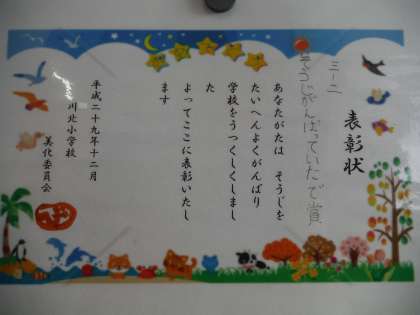 表彰状
三ー二
そうじがんばっていたで賞
あなたがたは そうじを
たいへんよくがんばり
学校をうつくしくしまし
た
よってここに表彰いたし
ます
平成二十九年十二月
川北小学校
美化委員会